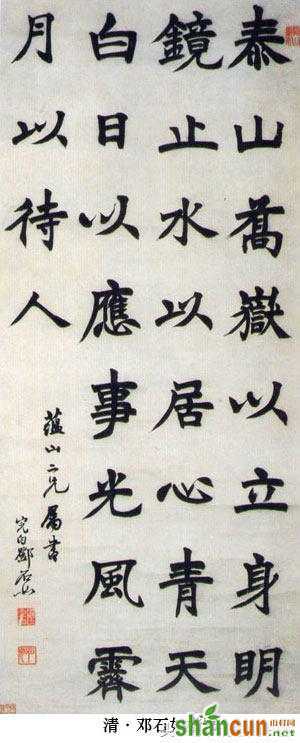 泰山喬嶽以立身明
鏡止水以居心青天
白日以應事光風霽
月以待人
蘊山二兄屬書
完白鄧石如
清·邓石
shancun
山村网
.net